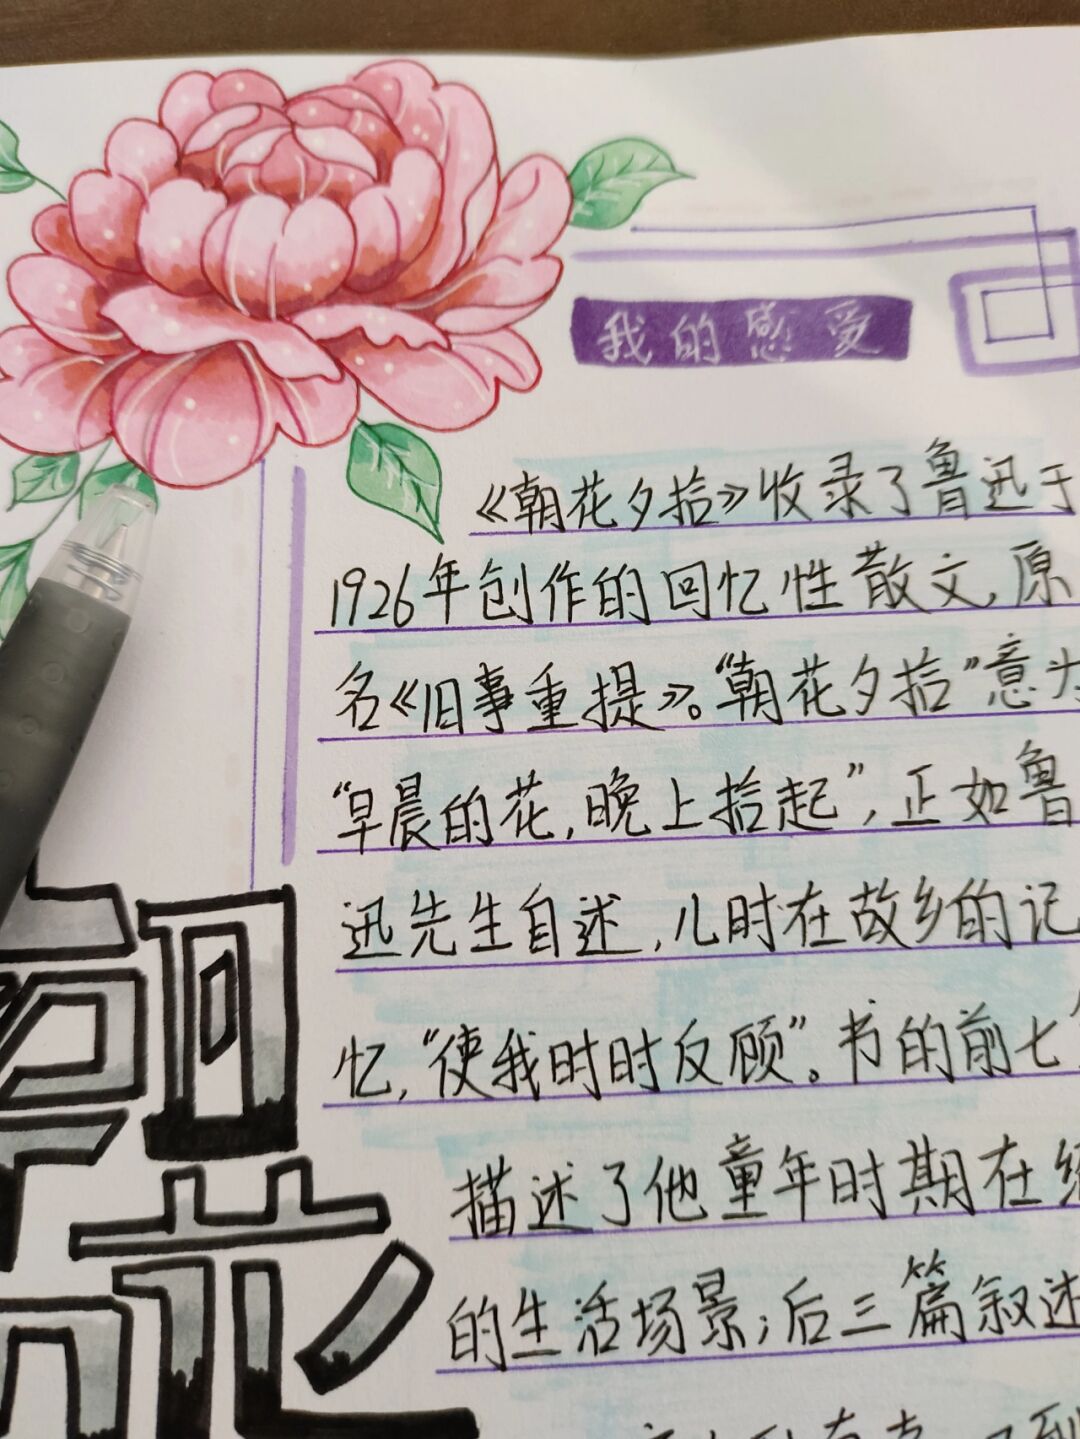 我的感受
《朝花夕拾》收录了鲁迅于
1926年创作的回忆性散文,原
名《旧事重提》。“朝花夕拾”意为
“早晨的花,晚上拾起”,正如鲁
迅先生自述,儿时在故乡的记
忆,“使我时时反顾”。书的前七
描述了他童年时期在
的生活场景;后三篇叙述
朝
花